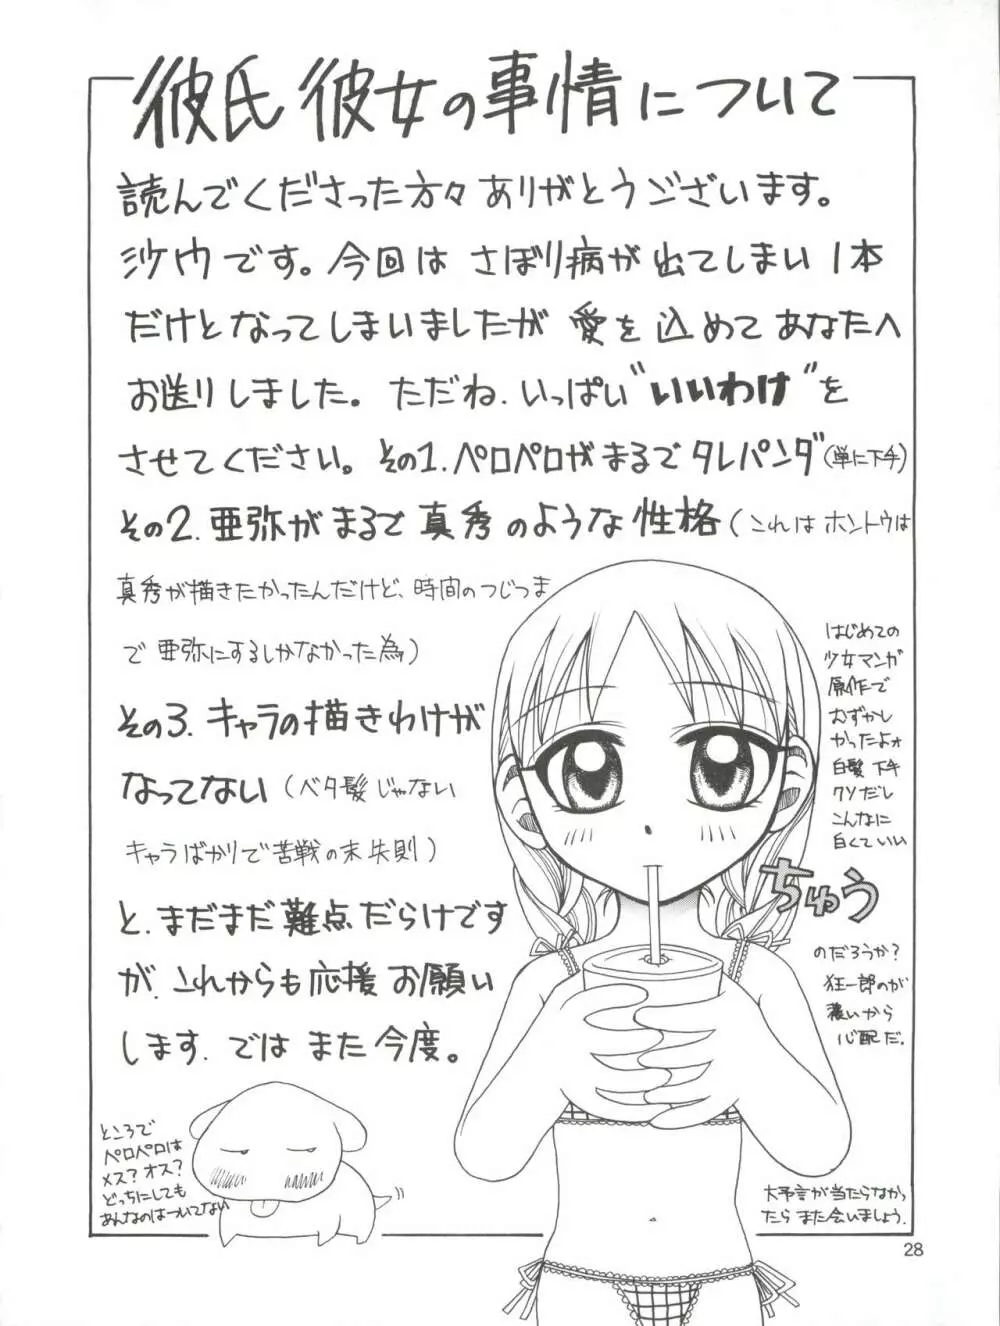 彼氏彼女の事情について
読んでくださった方々ありがとうございます。
沙ケウです。今回はさぼり病が出てしまい1本
だけとなってしまいましたが愛を込めてあなたへ
お送りしました。ただね、いっぱい"いいわけ"を
させてください。その1.ペロペロがまるでタレパンダ(単に下手)
その2.亜弥がまるで真秀のような性格(これはホントウは
真秀が描きたかったんだけど、時間のつじつま
で亜弥にするしかなかった為)
その3.キャラの描きわけが
なってない(ベタ髪じゃない
キャラばかりで苦戦の末失則)
と、まだまだ難点だらけです
が、これからも応援お願い
します。ではまた今度。
はじめての
少女マンガ
原作で
むずかし
かったよォ
白髪下手
クソだし
こんなに
白くていい
のだろうか?
狂一郎のが
濃いから
心配だ。
ちゅう
ところで
ペロペロは
メス?オス?
どっちにしても
あんなのはついてない
大予言が当たらなかっ
たらまた会いましょう。
28